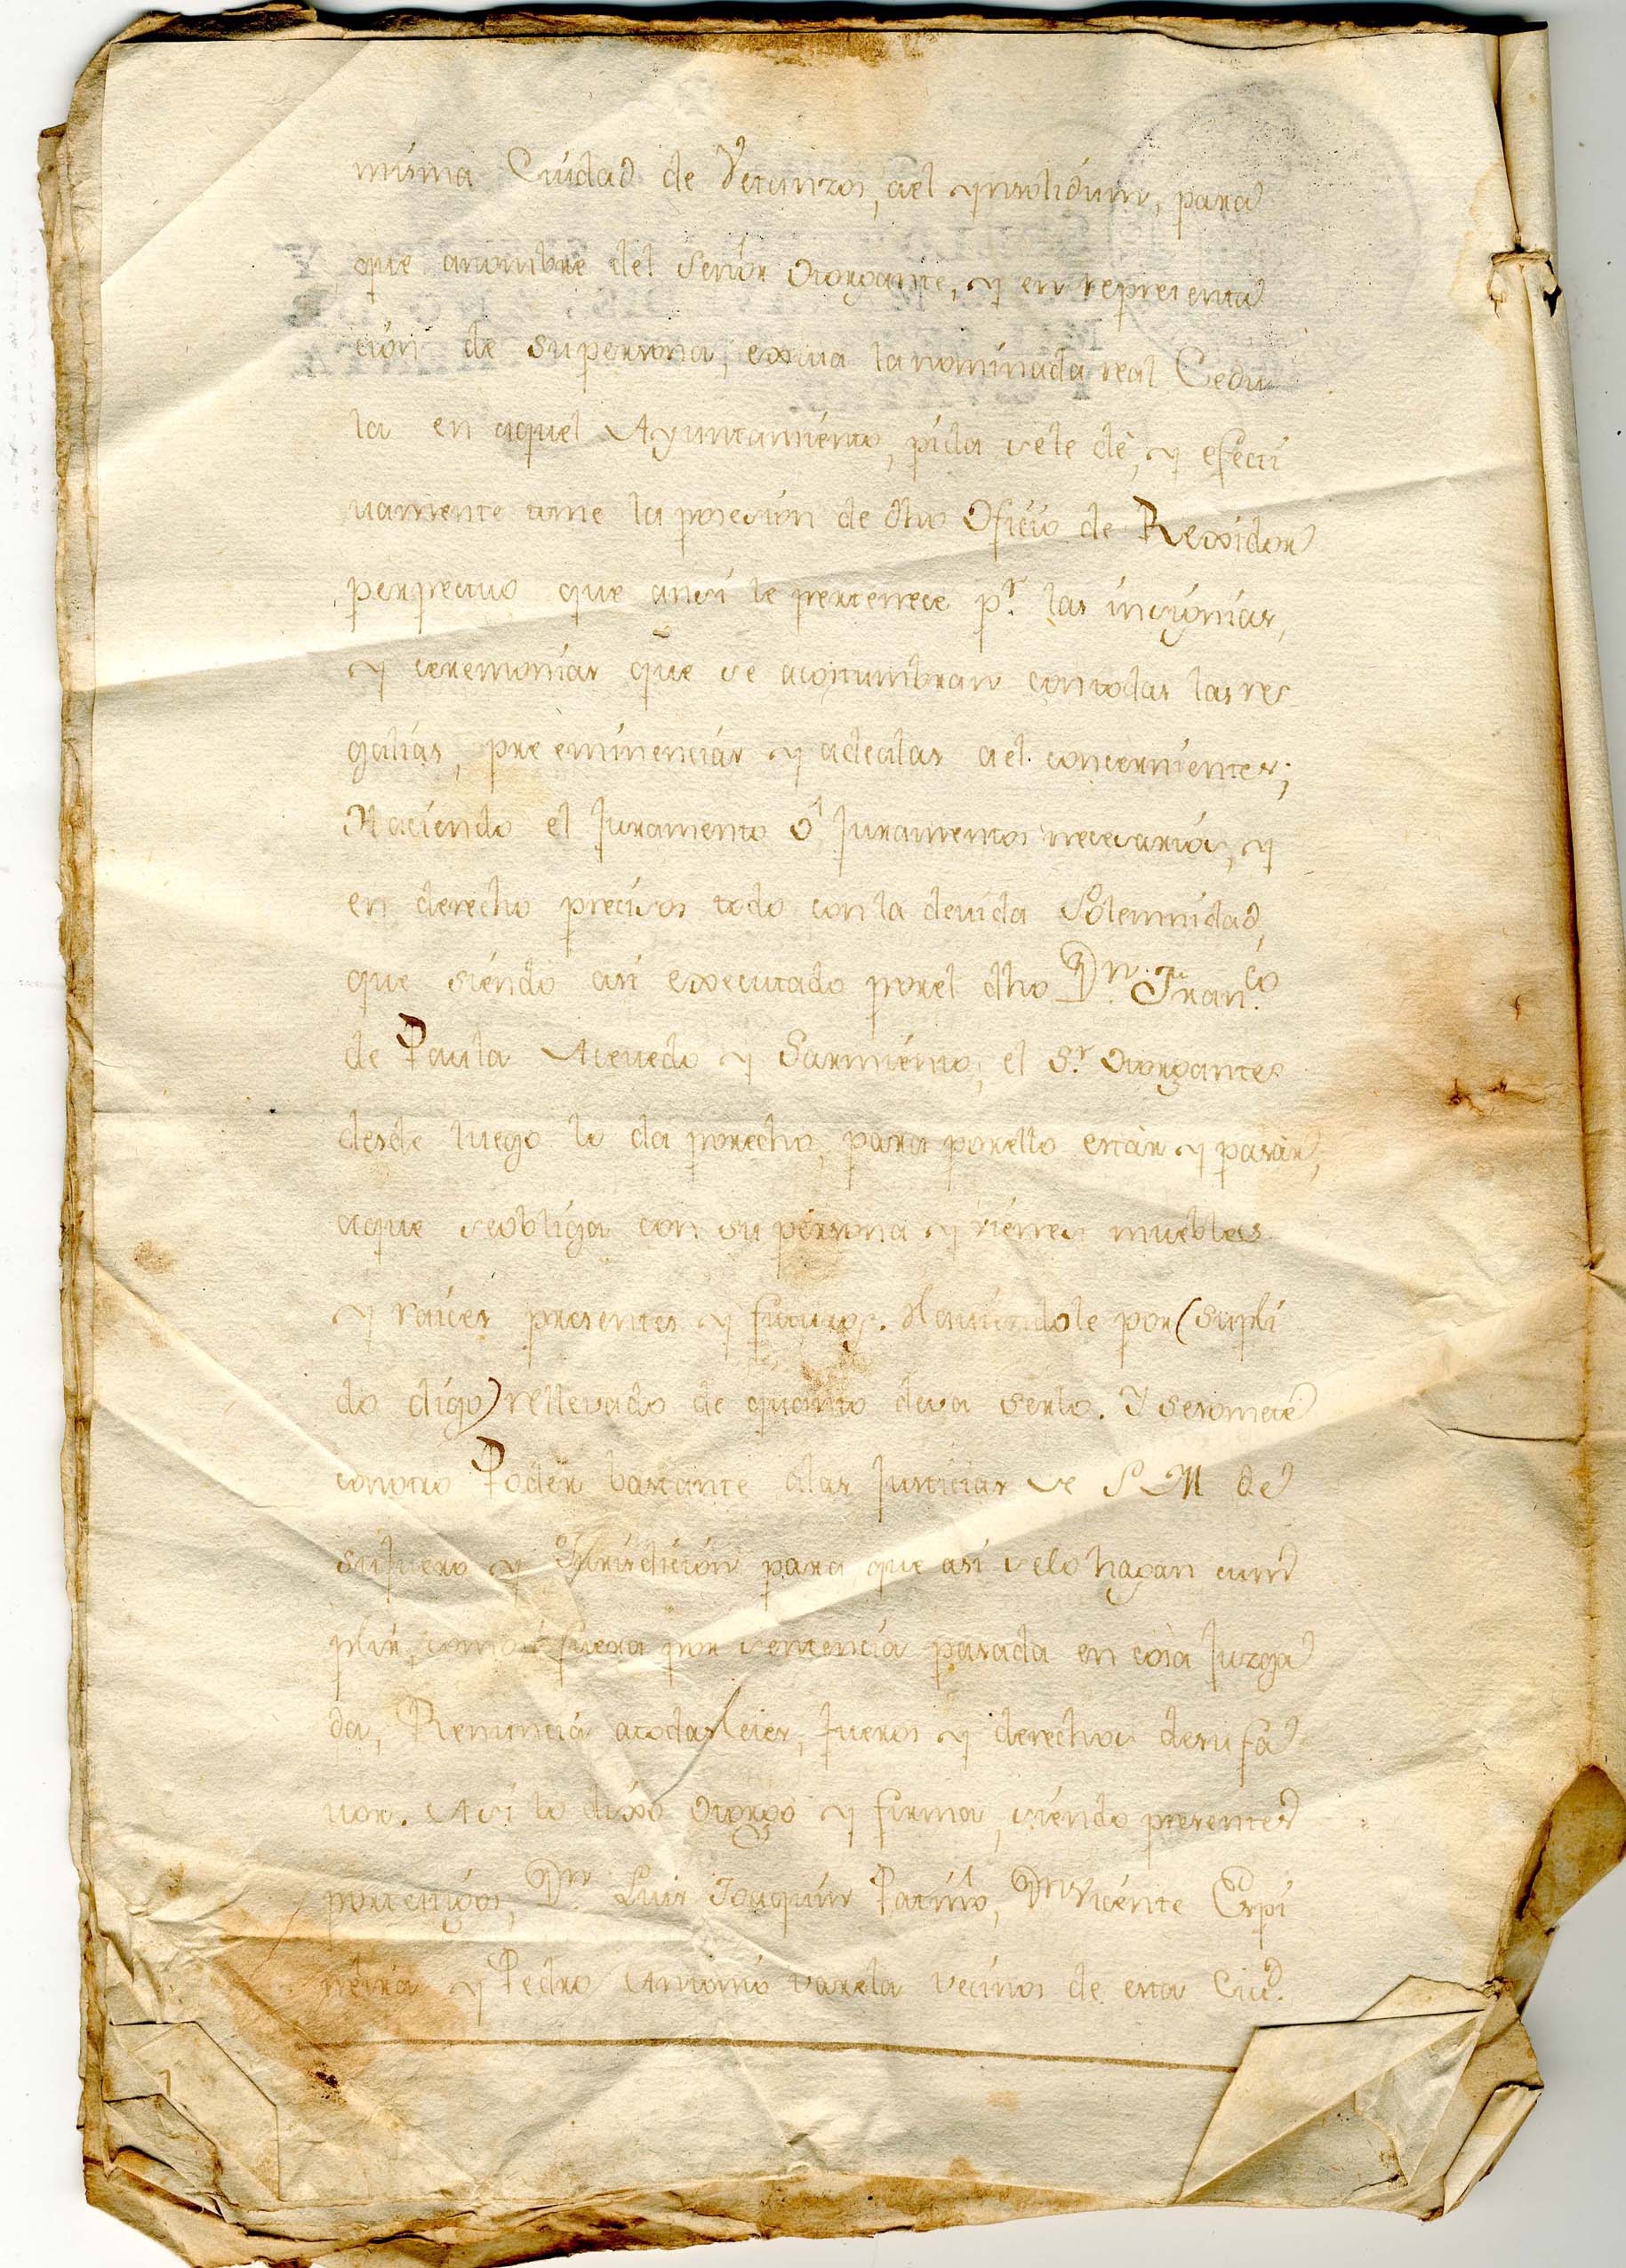 misma Ciudad de Vetanzos, ael ynsolidum, para
que anombre del Señor Otorgante, y en representa
cion de supersona, exiva lanominada real Cedu
la en aquel Ayuntamiento, pida sele dè, y efecti
vamente tome la posesion de dho Oficio de Rexidor
perpetuo que ansi le pertenece pr. las insignias,
y ceremonias que se acostumbran contodas las re
galias, preeminencias y adealas ael concernientes;
Haciendo el Juramento ò Juramentos necesarios, y
en derecho precisos todo conla devida Solemnidad,
que siendo asi executado porel dho Dn. Franco.
de Paula Acevedo y Sarmiento, el Sr. Otorgante
desde luego lo da porecho, para porello estàr y pasàr,
aque seobliga con su persona y vienes muebles
y raices presentes y futuros. Haviendole por (supli
do digo) rellevado de quanto deva serlo. Y sesomete
conotro Poder bastante alas Justicias de S M de
sufuero y Jurisdicion para que asi selo hagan cum
plir, comosi fuera por sentencia pasada en cosa Juzga
da, Renuncia atodas leies, fueros y derechos desu fa
vor. Asi lo dixo Otorgo y firma, siendo presentes
portestigos, Dn. Luis Joaquin Patiño, Dn Vicente Espi
ñeira y Pedro Antonio Varela vecinos de esta Ciud.